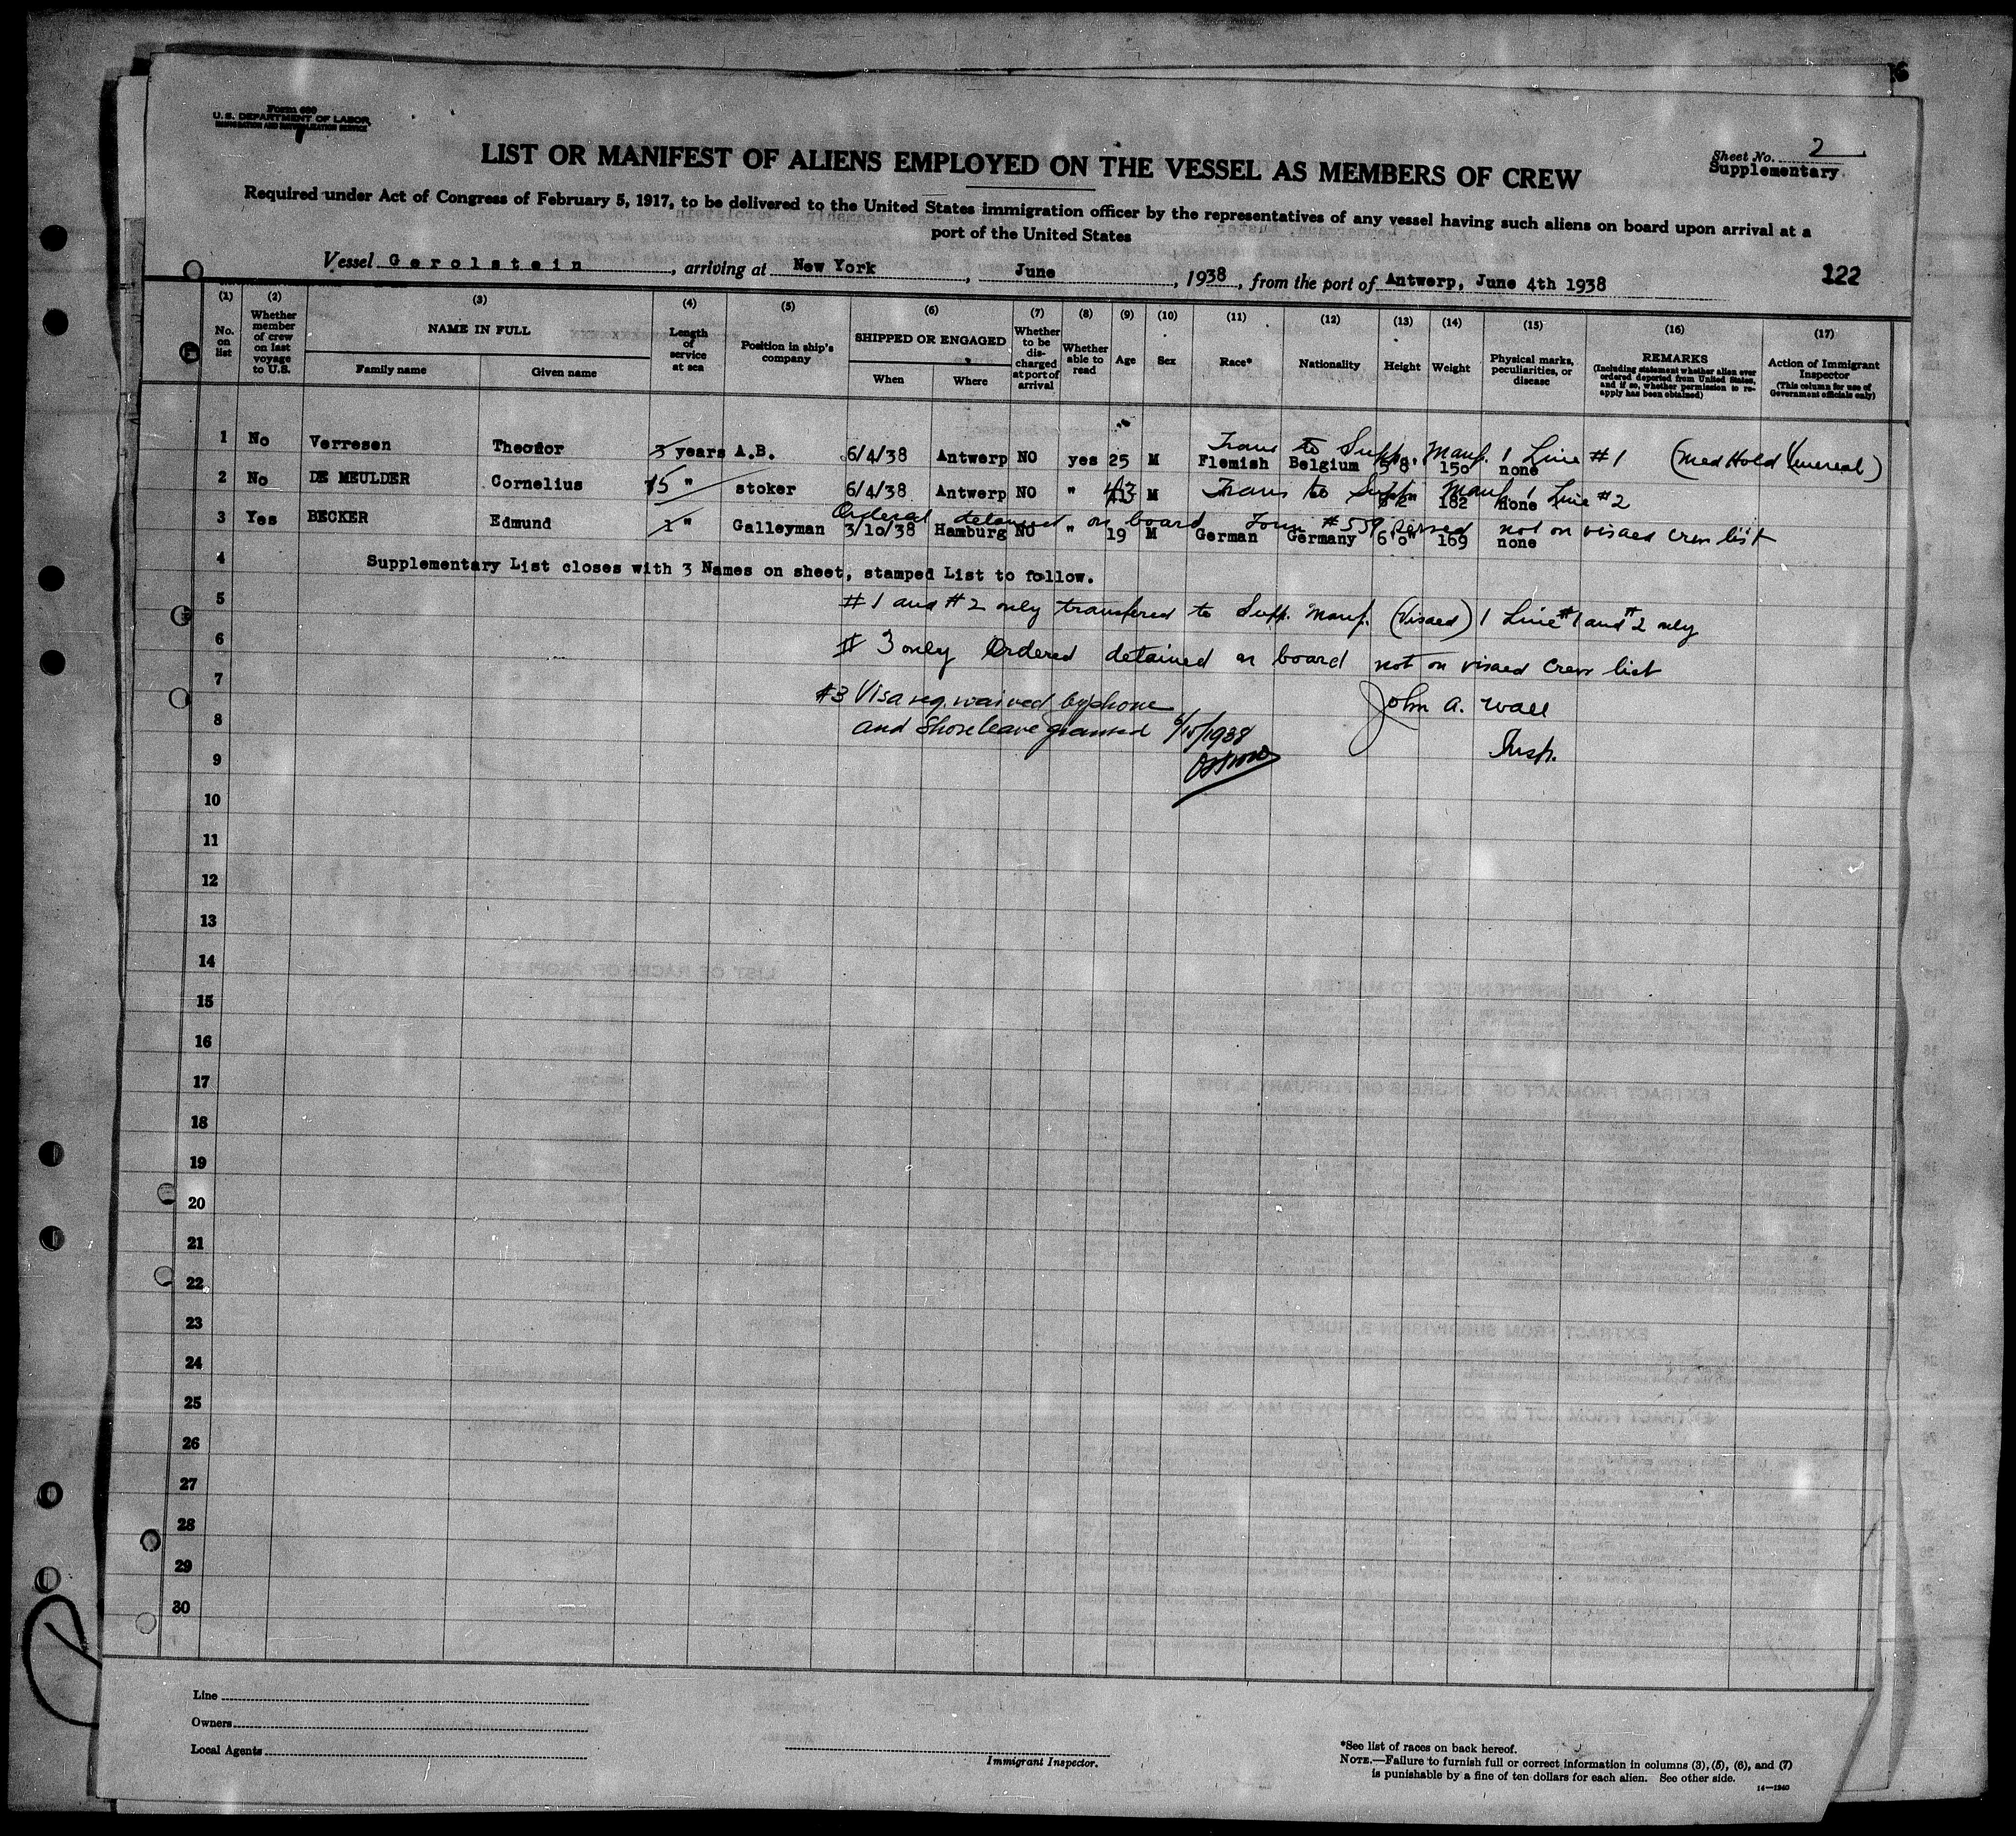 Form 680
U. S. DEPARTMENT OF LABOR
IMMIGRATION AND NATURALIZATION SERVICE
LIST OR MANIFEST OF ALIENS EMPLOYED ON THE VESSEL AS MEMBERS OF CREW
Sheet No. 2
Supplementary
Required under Act of Congress of February 5, 1917, to be delivered to the United States immigration officer by the representatives of any vessel having such aliens on board upon arrival at a
port of the United States
Vessel Gerolstein, arriving at New York, June, 1938, from the port of Antwerp, June 4th 1938
122
(1) (2) (3) (4) (5) (6) (7) (8) (9) (10) (11) (12) (13) (14) (15) (16) (17)
No. on list
Whether member of crew on last voyage to U.S.
NAME IN FULL
Family name Given name
Length of service at sea
Position in ship's company
SHIPPED OR ENGAGED
When Where
Whether to be discharged at port of arrival
Whether able to read
Age
Sex
Race*
Nationality
Height
Weight
Physical marks, peculiarities, or disease
REMARKS
(Including statement whether alien ever ordered deported from United States, and if so, whether permission to reapply has been obtained)
Action of Immigrant Inspector
(This column for use of Government officials only)
Trans to Supp. Manf. 1 Line #1 (Med Hold Venereal)
1 No Verresen Theodor 3 years A.B. 6/4/38 Antwerp NO yes 25 M Flemish Belgium 5 8 150 none
Trans to Supp. Manf. 1 Line #2
2 No DE MEULDER Cornelius 15 " stoker 6/4/38 Antwerp NO " M 182 none
Ordered detained on board Form #559 served not on visaed crew list
3 Yes BECKER Edmund 1 " Galleyman 3/10/38 Hamburg NO " 19 M German Germany 6 0" 169 none
4 Supplementary List closes with 3 Names on sheet, stamped List to follow.
5 #1 and #2 only transfered to Supp. Manf. (Visaed) 1 Line #1 and #2 only
6 # 3 only Ordered detained on board not on visaed crew list
7 #3 Visa req. waived by phone John A. Wall
8 and Shore leave granted 6/15/1938 Insp.
9
10
11
12
13
14
15
16
17
18
19
20
21
22
23
24
25
26
27
28
29
30
Line
Owners
Local Agents
Immigrant Inspector.
*See list of races on back hereof.
NOTE.—Failure to furnish full or correct information in columns (3), (5), (6), and (7)
is punishable by a fine of ten dollars for each alien. See other side.
14—1240